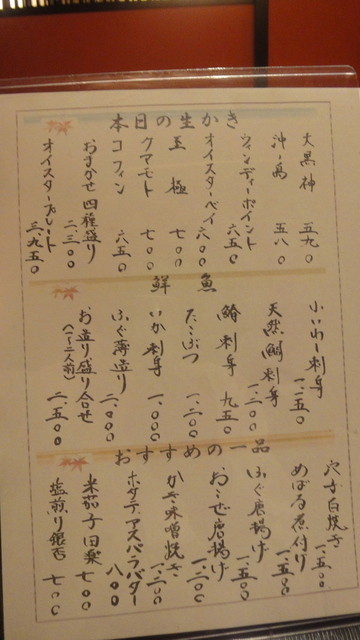 本日の生かき
大黒神 五九〇
沖ノ島 五八〇
ウィンディーポイント 六五〇
オイスターベイ 六〇〇
至極 七〇〇
クマモト 七〇〇
コフィン 六五〇
おまかせ四種盛り 二、三〇〇
オイスタープレート 三、九五〇
鮮魚
小いわし刺身 一、一五〇
天然鯛刺身 一、二〇〇
鰆刺身 九五〇
たこぶつ 一、二〇〇
いか刺身 一、〇〇〇
ふぐ薄造り 二、〇〇〇
お造り盛り合せ (一〜二人前) 二、五〇〇
おすすめの一品
穴子白焼き 一、五〇〇
めばる煮付け 一、五〇〇
ふぐ唐揚げ 一、五〇〇
おこぜ唐揚げ 一、二〇〇
かき味噌焼き 一、二〇〇
ホタテアスパラバター 八〇〇
米茄子田楽 七〇〇
塩煎り銀杏 七〇〇